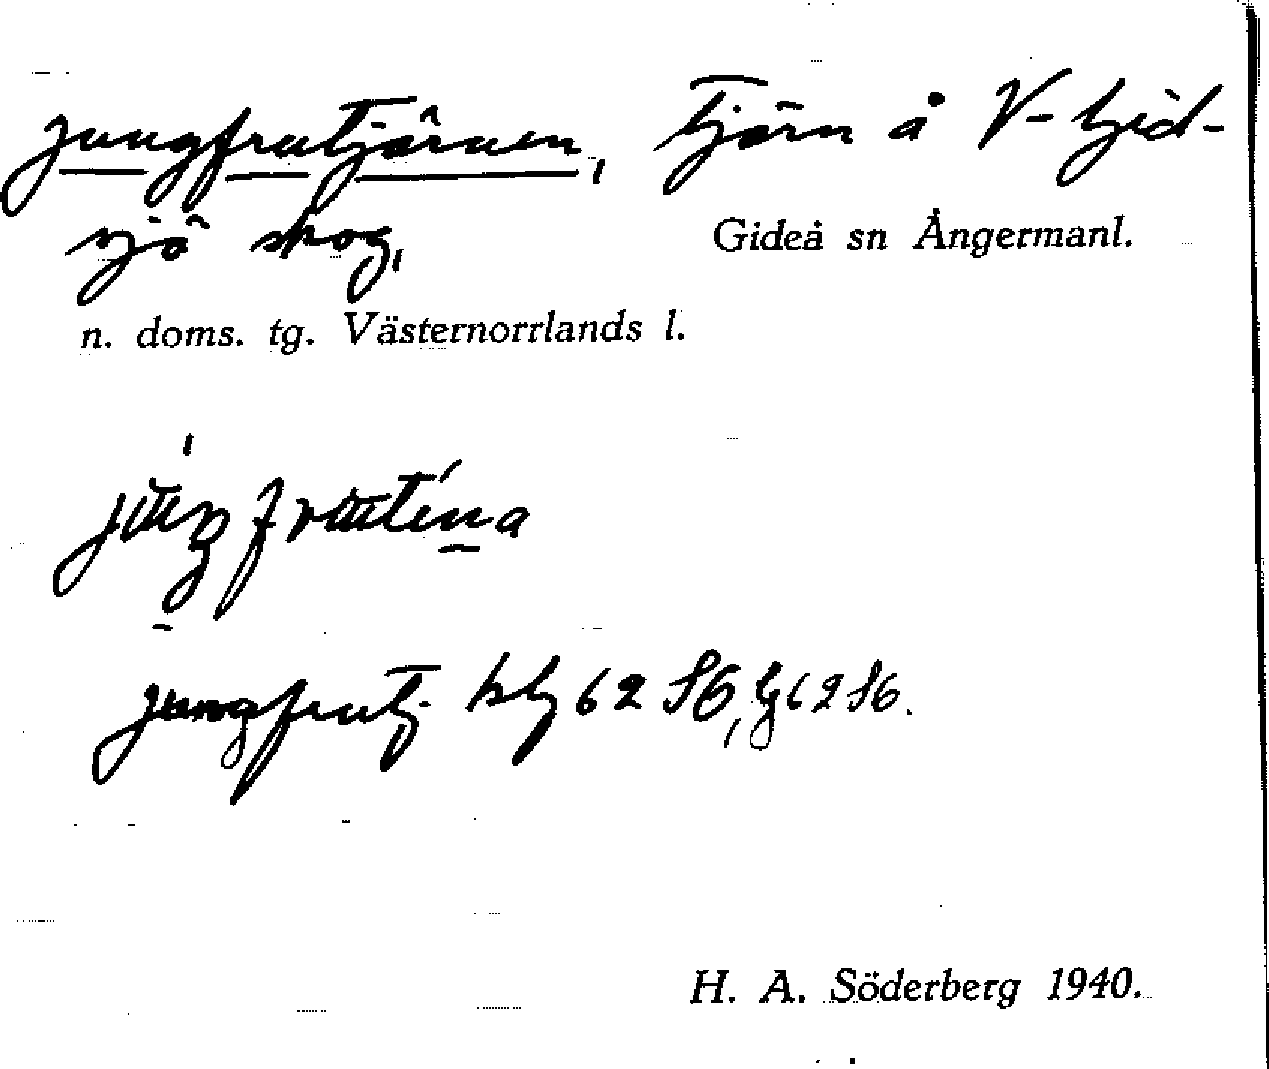 Jungfrutjärnen, Tjärn å V-Gid-
sjö skog, Gideå sn Ångermanl.
n. doms. tg. Västernorrlands l.
Jungfrutj. 62 S6, 62 S6.
H. A. Söderberg 1940.